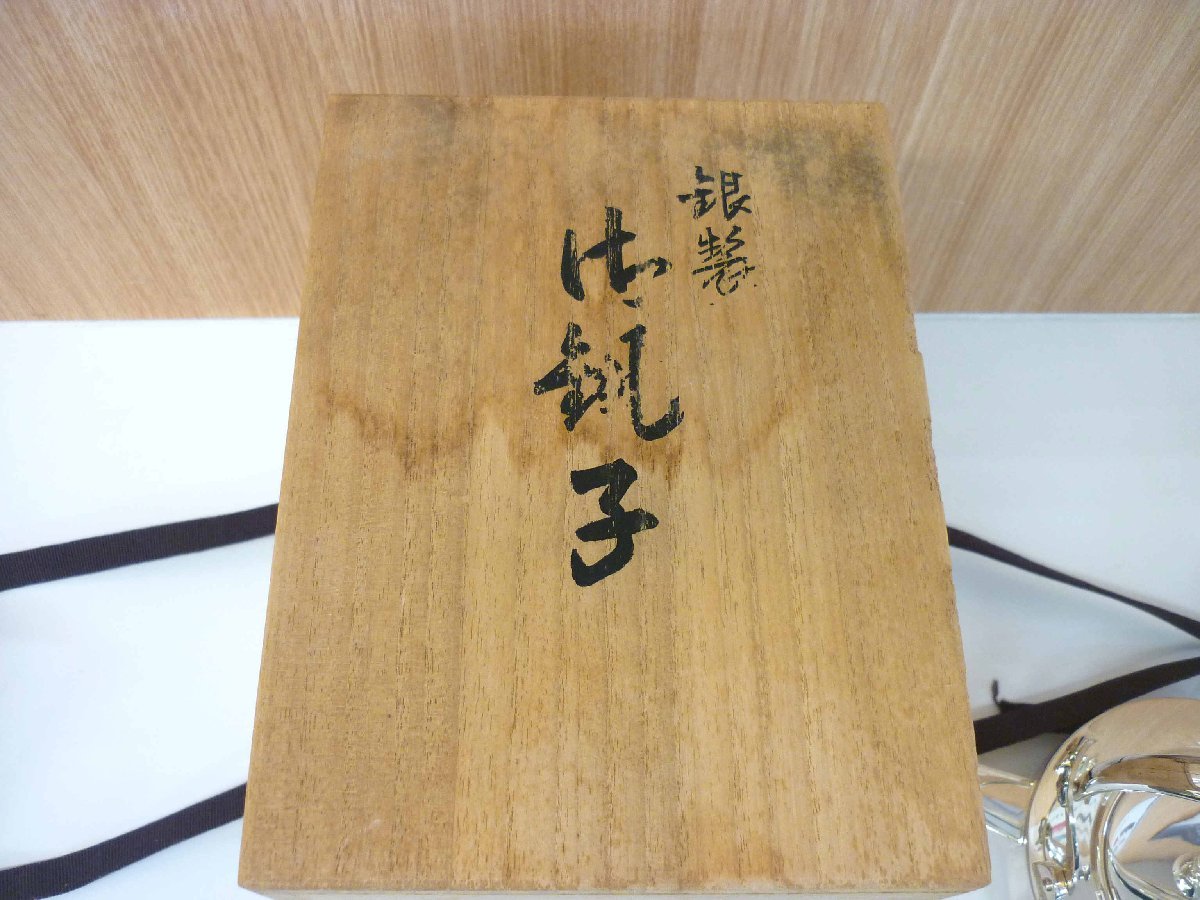 銀製
御銚子